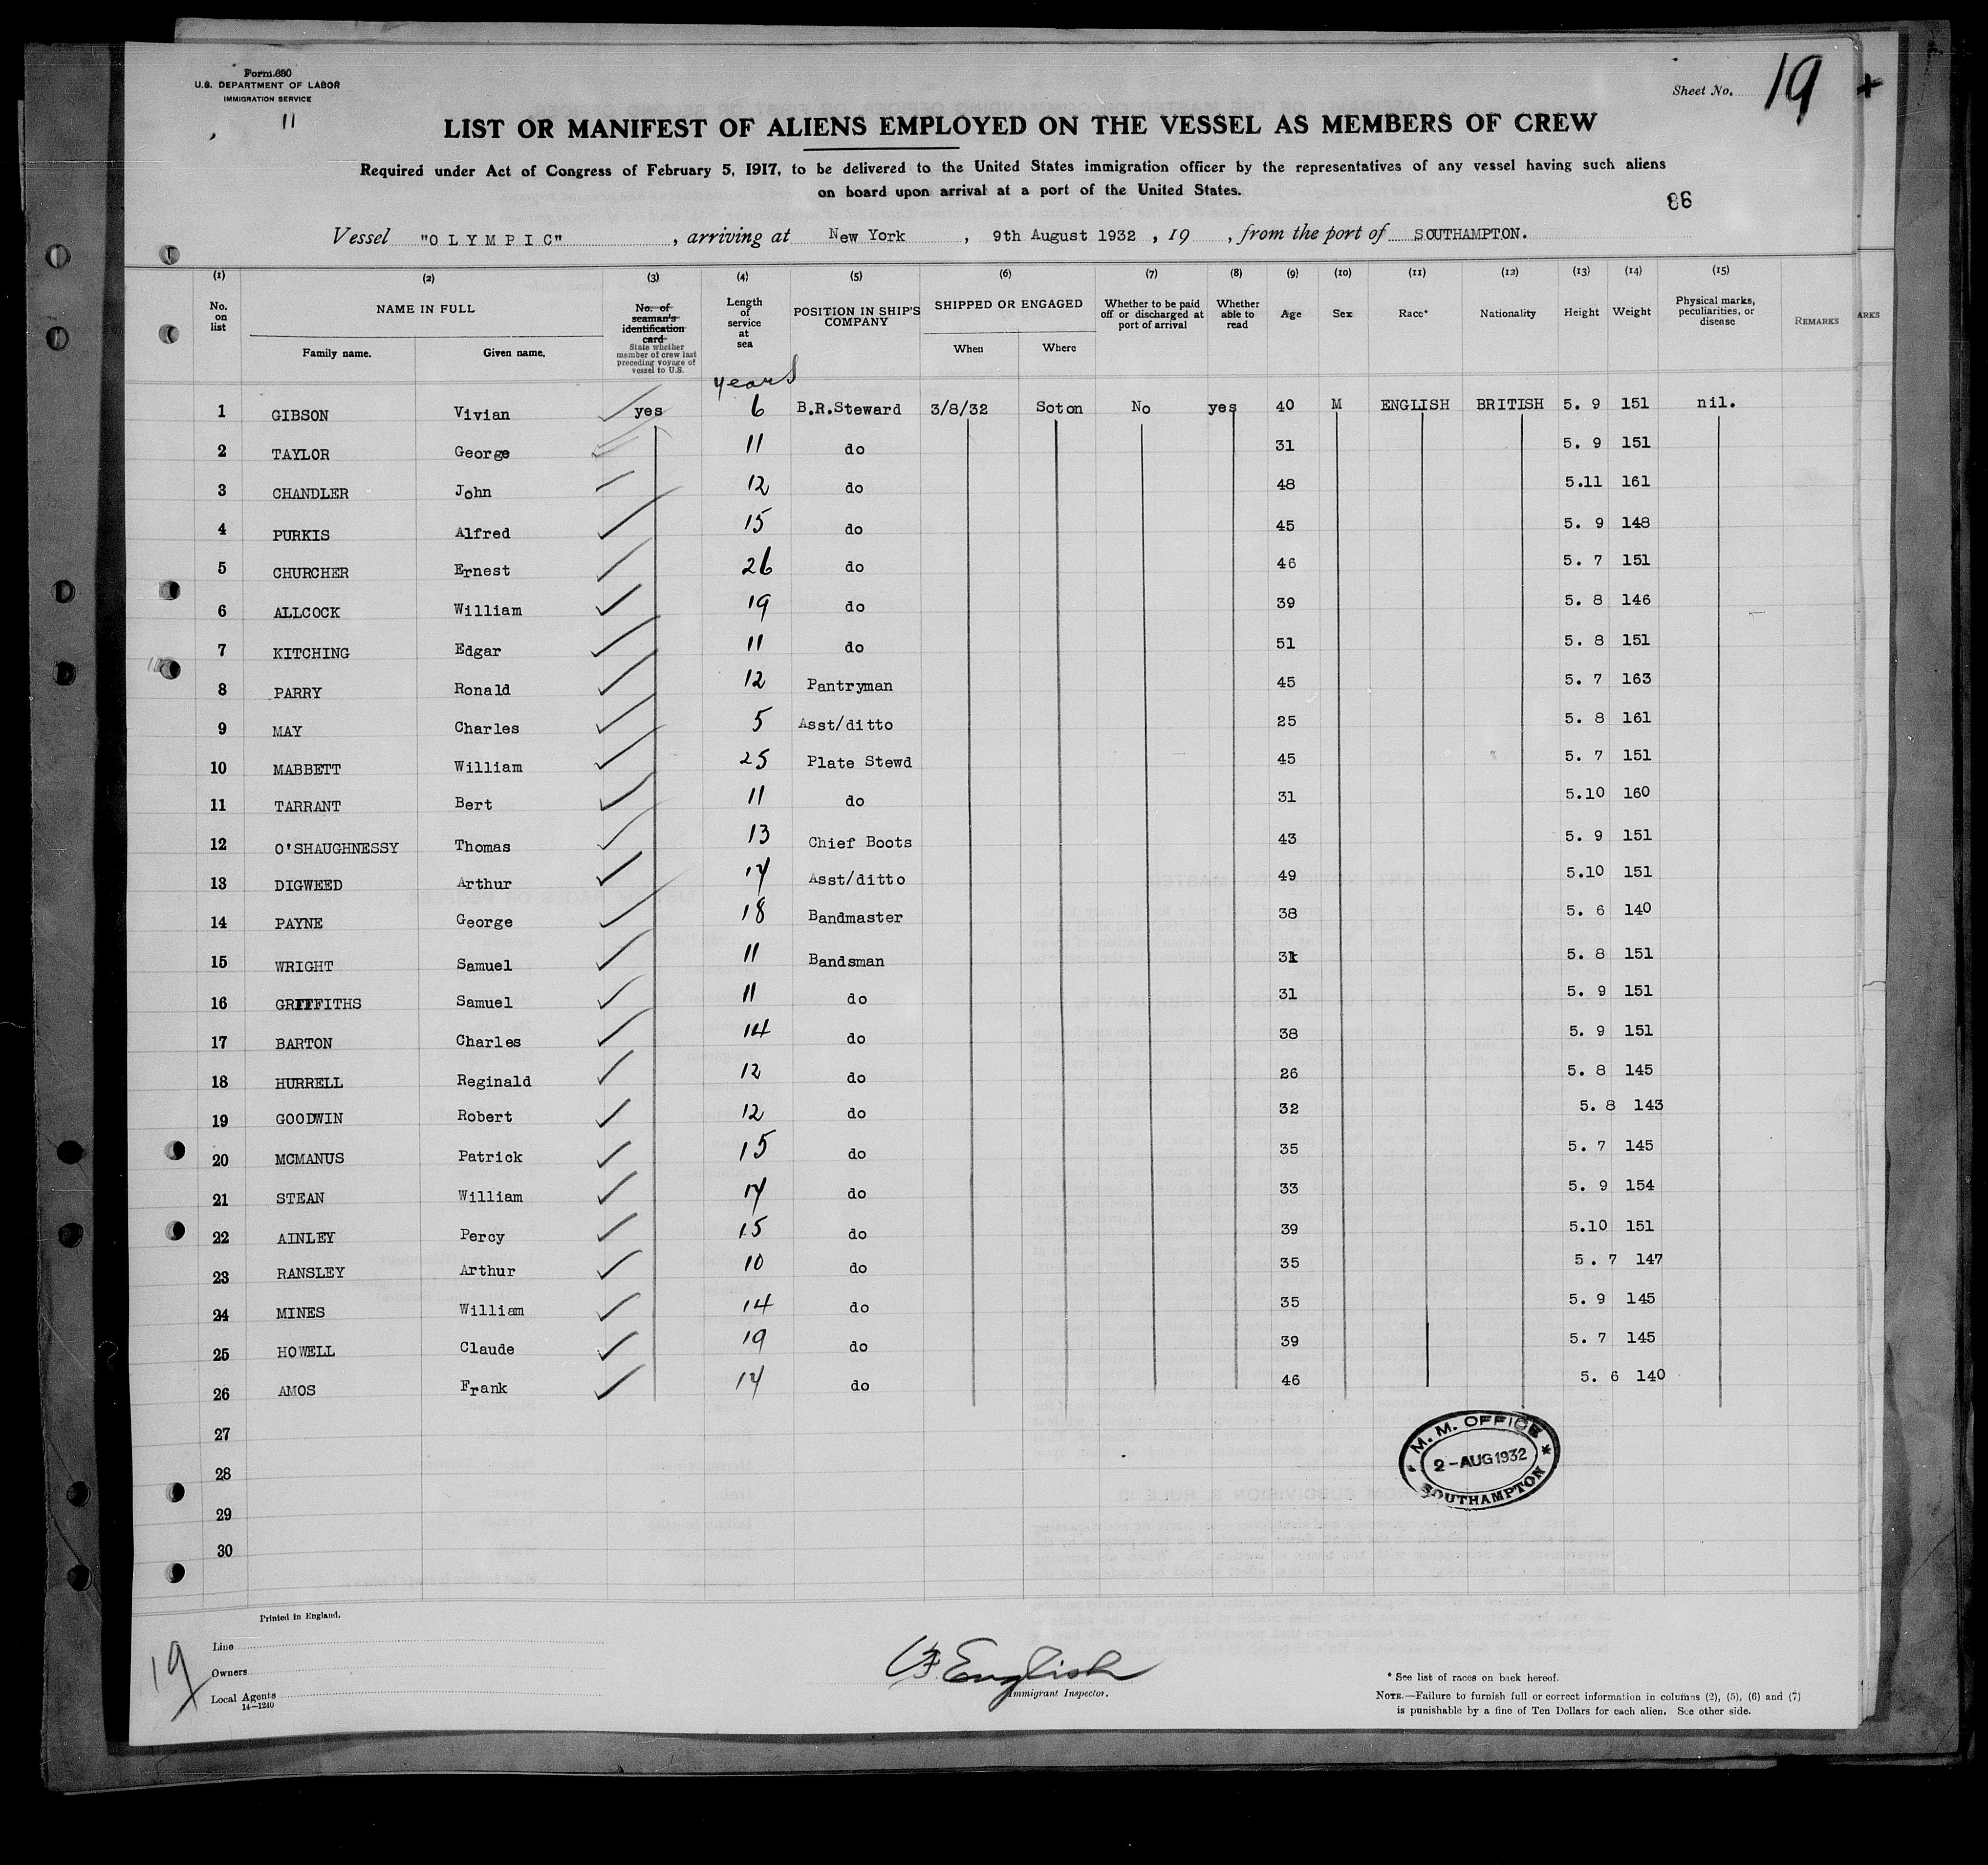 Form 680
U.S. DEPARTMENT OF LABOR
IMMIGRATION SERVICE
11
Sheet No. 19
LIST OR MANIFEST OF ALIENS EMPLOYED ON THE VESSEL AS MEMBERS OF CREW
Required under Act of Congress of February 5, 1917, to be delivered to the United States immigration officer by the representatives of any vessel having such aliens
on board upon arrival at a port of the United States.
86
Vessel "OLYMPIC", arriving at New York, 9th August 1932, 19 , from the port of SOUTHAMPTON.
(1) (2) (3) (4) (5) (6) (7) (8) (9) (10) (11) (12) (13) (14) (15)
No. on list NAME IN FULL Family name. Given name. No. of seaman's identification card State whether member of crew last preceding voyage of vessel to U.S. Length of service at sea POSITION IN SHIP'S COMPANY SHIPPED OR ENGAGED When Where Whether to be paid off or discharged at port of arrival Whether able to read Age Sex Race* Nationality Height Weight Physical marks, peculiarities, or disease REMARKS ARKS
years
1 GIBSON Vivian yes 6 B.R.Steward 3/8/32 Soton No yes 40 M ENGLISH BRITISH 5. 9 151 nil.
2 TAYLOR George 11 do 31 5. 9 151
3 CHANDLER John 12 do 48 5.11 161
4 PURKIS Alfred 15 do 45 5. 9 148
5 CHURCHER Ernest 26 do 46 5. 7 151
6 ALLCOCK William 19 do 39 5. 8 146
7 KITCHING Edgar 11 do 51 5. 8 151
8 PARRY Ronald 12 Pantryman 45 5. 7 163
9 MAY Charles 5 Asst/ditto 25 5. 8 161
10 MABBETT William 25 Plate Stewd 45 5. 7 151
11 TARRANT Bert 11 do 31 5.10 160
12 O'SHAUGHNESSY Thomas 13 Chief Boots 43 5. 9 151
13 DIGWEED Arthur 14 Asst/ditto 49 5.10 151
14 PAYNE George 18 Bandmaster 38 5. 6 140
15 WRIGHT Samuel 11 Bandsman 31 5. 8 151
16 GRIFFITHS Samuel 11 do 31 5. 9 151
17 BARTON Charles 14 do 38 5. 9 151
18 HURRELL Reginald 12 do 26 5. 8 145
19 GOODWIN Robert 12 do 32 5. 8 143
20 MCMANUS Patrick 15 do 35 5. 7 145
21 STEAN William 14 do 33 5. 9 154
22 AINLEY Percy 15 do 39 5.10 151
23 RANSLEY Arthur 10 do 35 5. 7 147
24 MINES William 14 do 35 5. 9 145
25 HOWELL Claude 19 do 39 5. 7 145
26 AMOS Frank 14 do 46 5. 6 140
27
28
29
30
M. M. OFFICE
2-AUG 1932
SOUTHAMPTON
Printed in England.
19
Line
Owners
Local Agents
14-1240
English
Immigrant Inspector.
* See list of races on back hereof.
NOTE.—Failure to furnish full or correct information in columns (2), (5), (6) and (7)
is punishable by a fine of Ten Dollars for each alien. See other side.